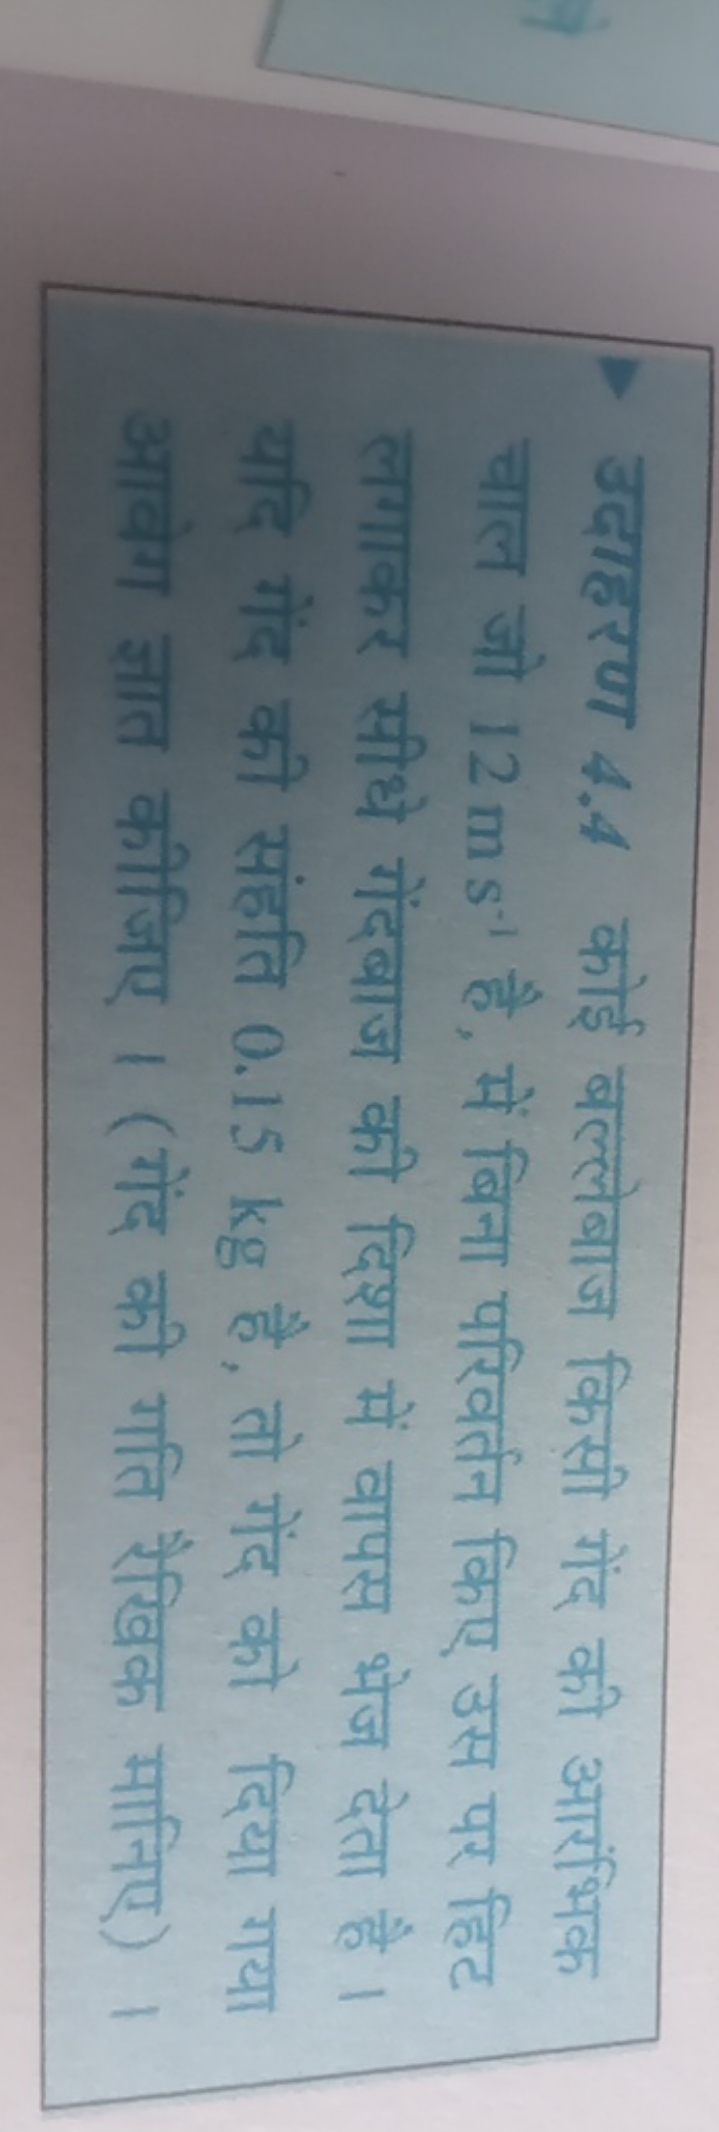 उदाहरण 4.4 कोई बल्लेबाज किसी गेंद की आरंभिक
चाल जो 12 m s⁻¹ है, में बिना परिवर्तन किए उस पर हिट
लगाकर सीधे गेंदबाज की दिशा में वापस भेज देता है।
यदि गेंद की संहति 0.15 kg है, तो गेंद को दिया गया
आवेग ज्ञात कीजिए । (गेंद की गति रैखिक मानिए) ।